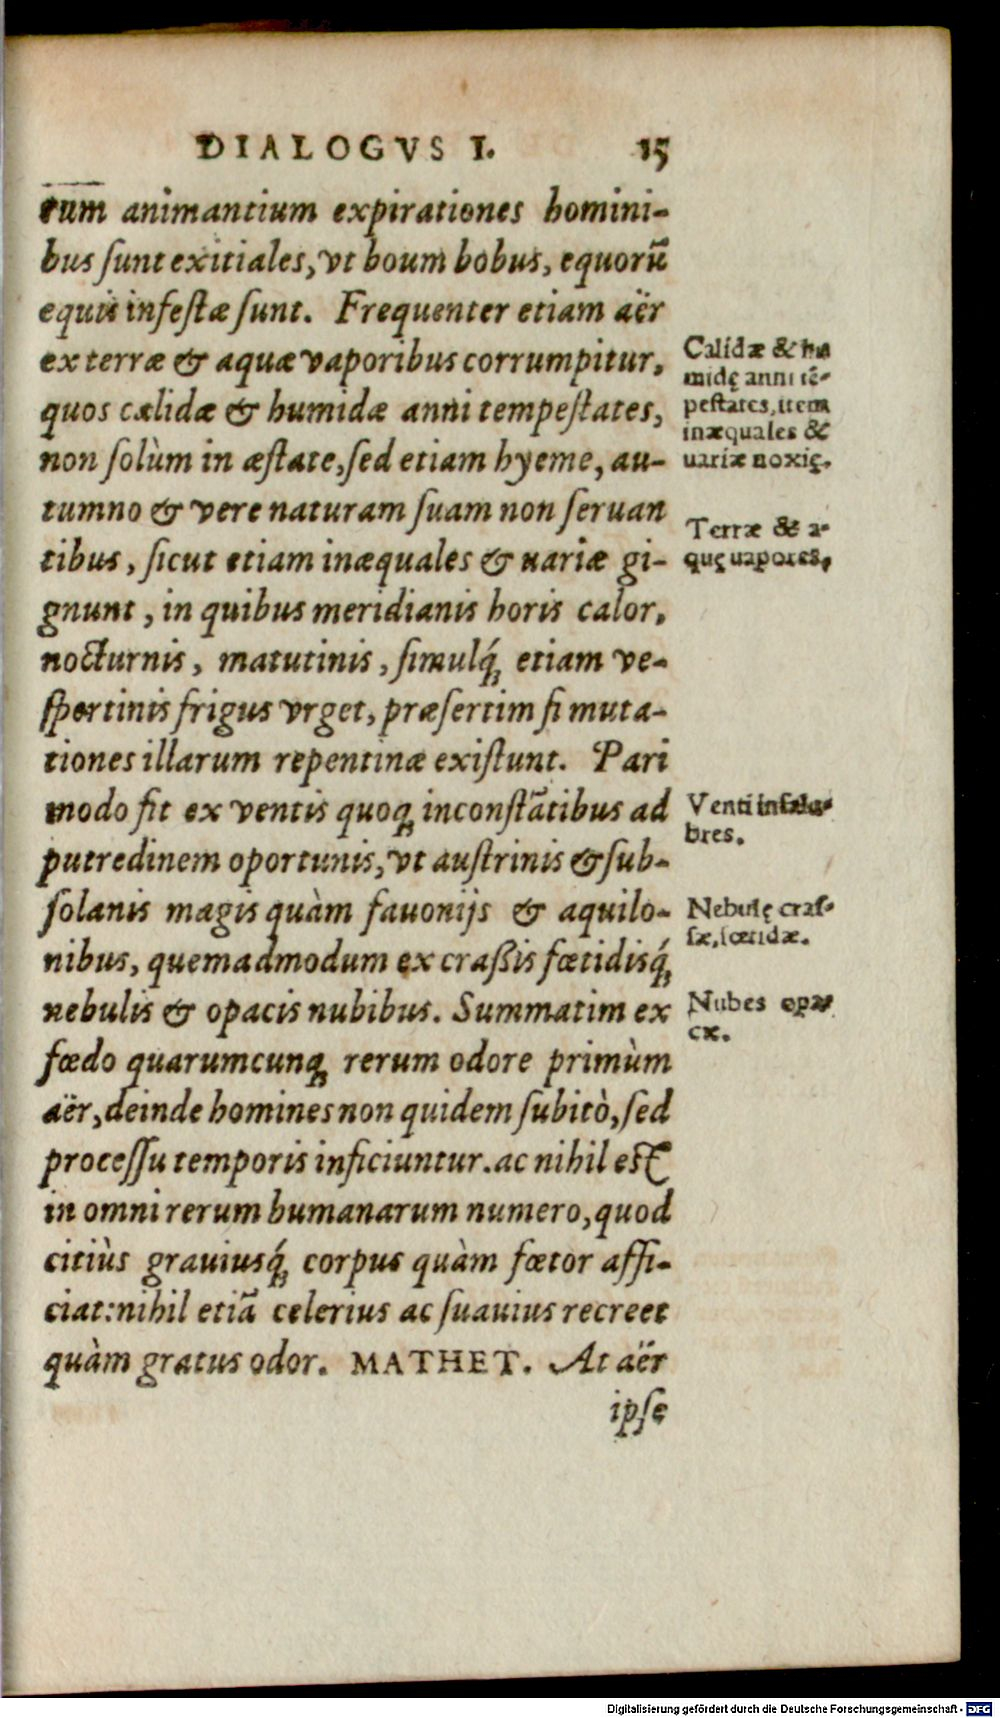 DIALOGVS I. 15
rum animantium expirationes homini-
bus ſunt exitiales, vt boum bobus, equorũ
equis infeſtæ ſunt. Frequenter etiam aër
ex terræ & aquæ vaporibus corrumpitur,
quos calidæ & humidæ anni tempeſtates,
non ſolùm in æſtate, ſed etiam hyeme, au-
tumno & vere naturam ſuam non ſeruan
tibus, ſicut etiam inæquales & uariæ gi-
gnunt, in quibus meridianis horis calor,
nocturnis, matutinis, ſimulq́; etiam ve-
ſpertinis frigus vrget, præſertim ſi muta-
tiones illarum repentinæ exiſtunt. Pari
modo fit ex ventis quoq; inconſtãtibus ad
putredinem oportunis, vt auſtrinis & ſub-
ſolanis magis quàm fauonijs & aquilo-
nibus, quemadmodum ex craßis fœtidisq́;
nebulis & opacis nubibus. Summatim ex
fœdo quarumcunq; rerum odore primùm
aër, deinde homines non quidem ſubitò, ſed
proceſſu temporis inficiuntur. ac nihil eſt
in omni rerum humanarum numero, quod
citiùs grauiusq́; corpus quàm fœtor affi-
ciat: nihil etiã celerius ac ſuauius recreet
quàm gratus odor. MATHET. At aër
ipſe
Calidæ & hu
midę anni tē-
peſtates, item
inæquales &
uariæ noxię.
Terræ & a-
quę uapores,
Venti inſalu-
bres.
Nebulę craſ-
ſæ, fœtidæ.
Nubes opa-
cæ.
Digitalisierung gefördert durch die Deutsche Forschungsgemeinschaft - DFG